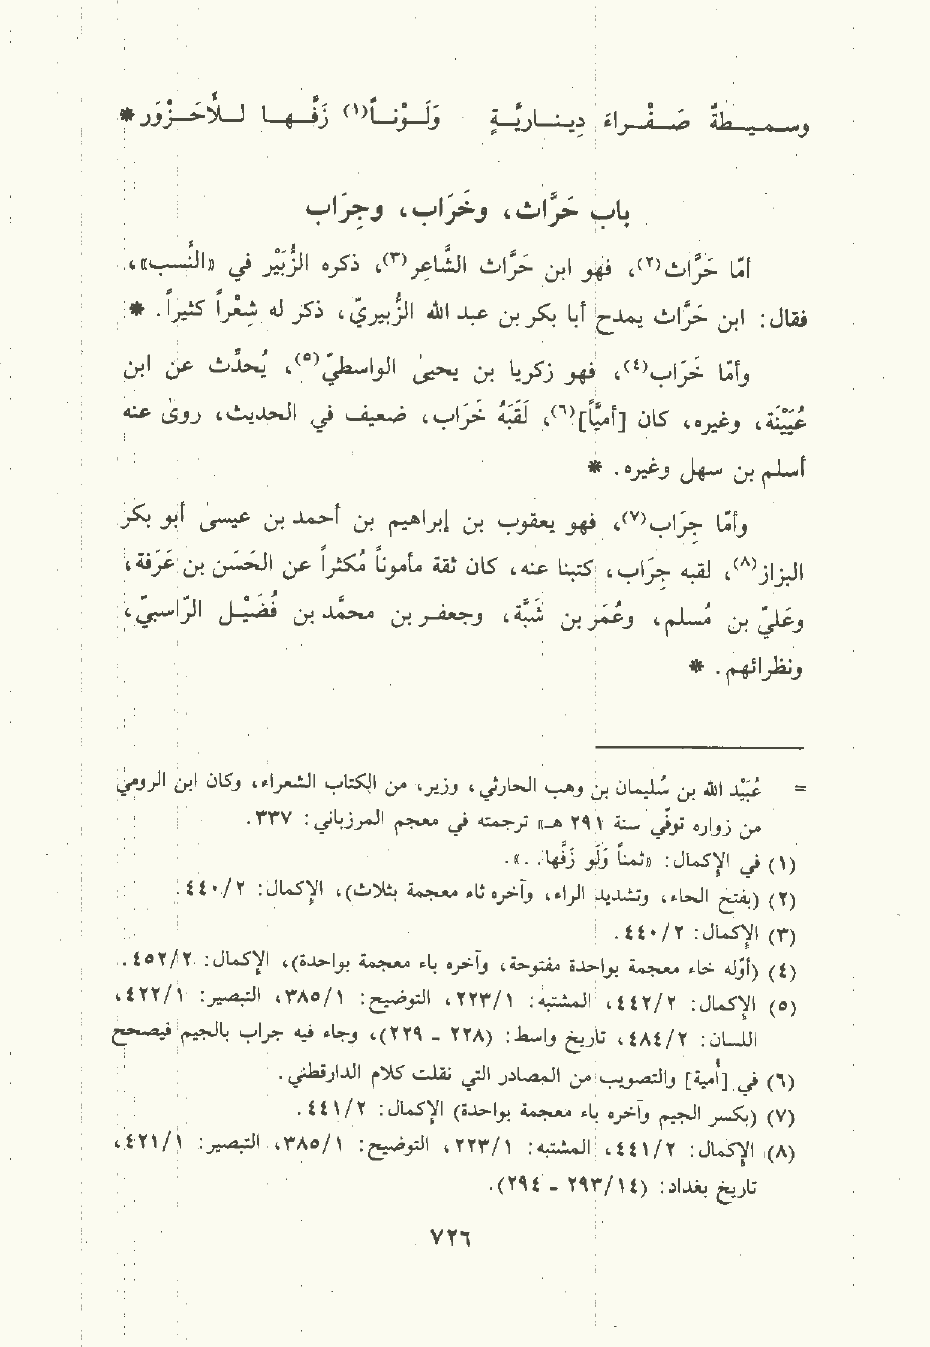 وسميطةٌ صَفْراءَ دِينارِيَّةٍ وَلَوْناً(١) زَفَّها للأَحَزْوَر*
باب حَرَّاث، وخَرَاب، وجِرَاب
أمّا حَرَّاث(٢)، فهو ابن حَرَّاث الشَّاعِر(٣)، ذكره الزُّبَيْر في «النَّسب»،
فقال: ابن حَرَّاث يمدح أبا بكر بن عبد الله الزُّبيريّ، ذكر له شِعْراً كثيراً. *
وأمّا خَرَاب(٤)، فهو زكريا بن يحيىٰ الواسطيّ(٥)، يُحدِّث عن ابن
عُيَيْنَة، وغيره، كان [أميَّاً](٦)، لَقَبَهُ خَرَاب، ضعيف في الحديث، روىٰ عنه
أسلم بن سهل وغيره. *
وأمّا جِرَاب(٧)، فهو يعقوب بن إبراهيم بن أحمد بن عيسىٰ أبو بكر
البزاز(٨)، لقبه جِرَاب، كتبنا عنه، كان ثقة مأموناً مُكثراً عن الحَسَن بن عَرَفة،
وعَليّ بن مُسلم، وعُمَر بن شَبَّة، وجعفر بن محمَّد بن فُضَيْل الرّاسبيّ،
ونظرائهم. *
= عُبَيْد الله بن سُليمان بن وهب الحارثي، وزير، من الكتاب الشعراء، وكان ابن الرومي
من زواره توفّي سنة ٢٩١ هـ» ترجمته في معجم المرزباني: ٣٣٧.
(١) في الإكمال: «ثمناً وَلَو زَفَّها. .».
(٢) (بفتح الحاء، وتشديد الراء، وآخره ثاء معجمة بثلاث)، الإكمال: ٤٤٠/٢.
(٣) الإكمال: ٤٤٠/٢.
(٤) (أوّله خاء معجمة بواحدة مفتوحة، وآخره باء معجمة بواحدة)، الإكمال: ٤٥٢/٢.
(٥) الإكمال: ٤٤٢/٢، المشتبه: ٢٢٣/١، التوضيح: ٣٨٥/١، التبصير: ٤٢٢/١،
اللسان: ٤٨٤/٢، تاريخ واسط: (٢٢٨ - ٢٢٩)، وجاء فيه جراب بالجيم فيصحح
(٦) في [أمية] والتصويب من المصادر التي نقلت كلام الدارقطني.
(٧) (بكسر الجيم وآخره باء معجمة بواحدة) الإكمال: ٤٤١/٢.
(٨) الإكمال: ٤٤١/٢، المشتبه: ٢٢٣/١، التوضيح: ٣٨٥/١، التبصير: ٤٢١/١،
تاريخ بغداد: (٢٩٣/١٤ - ٢٩٤).
٧٢٦